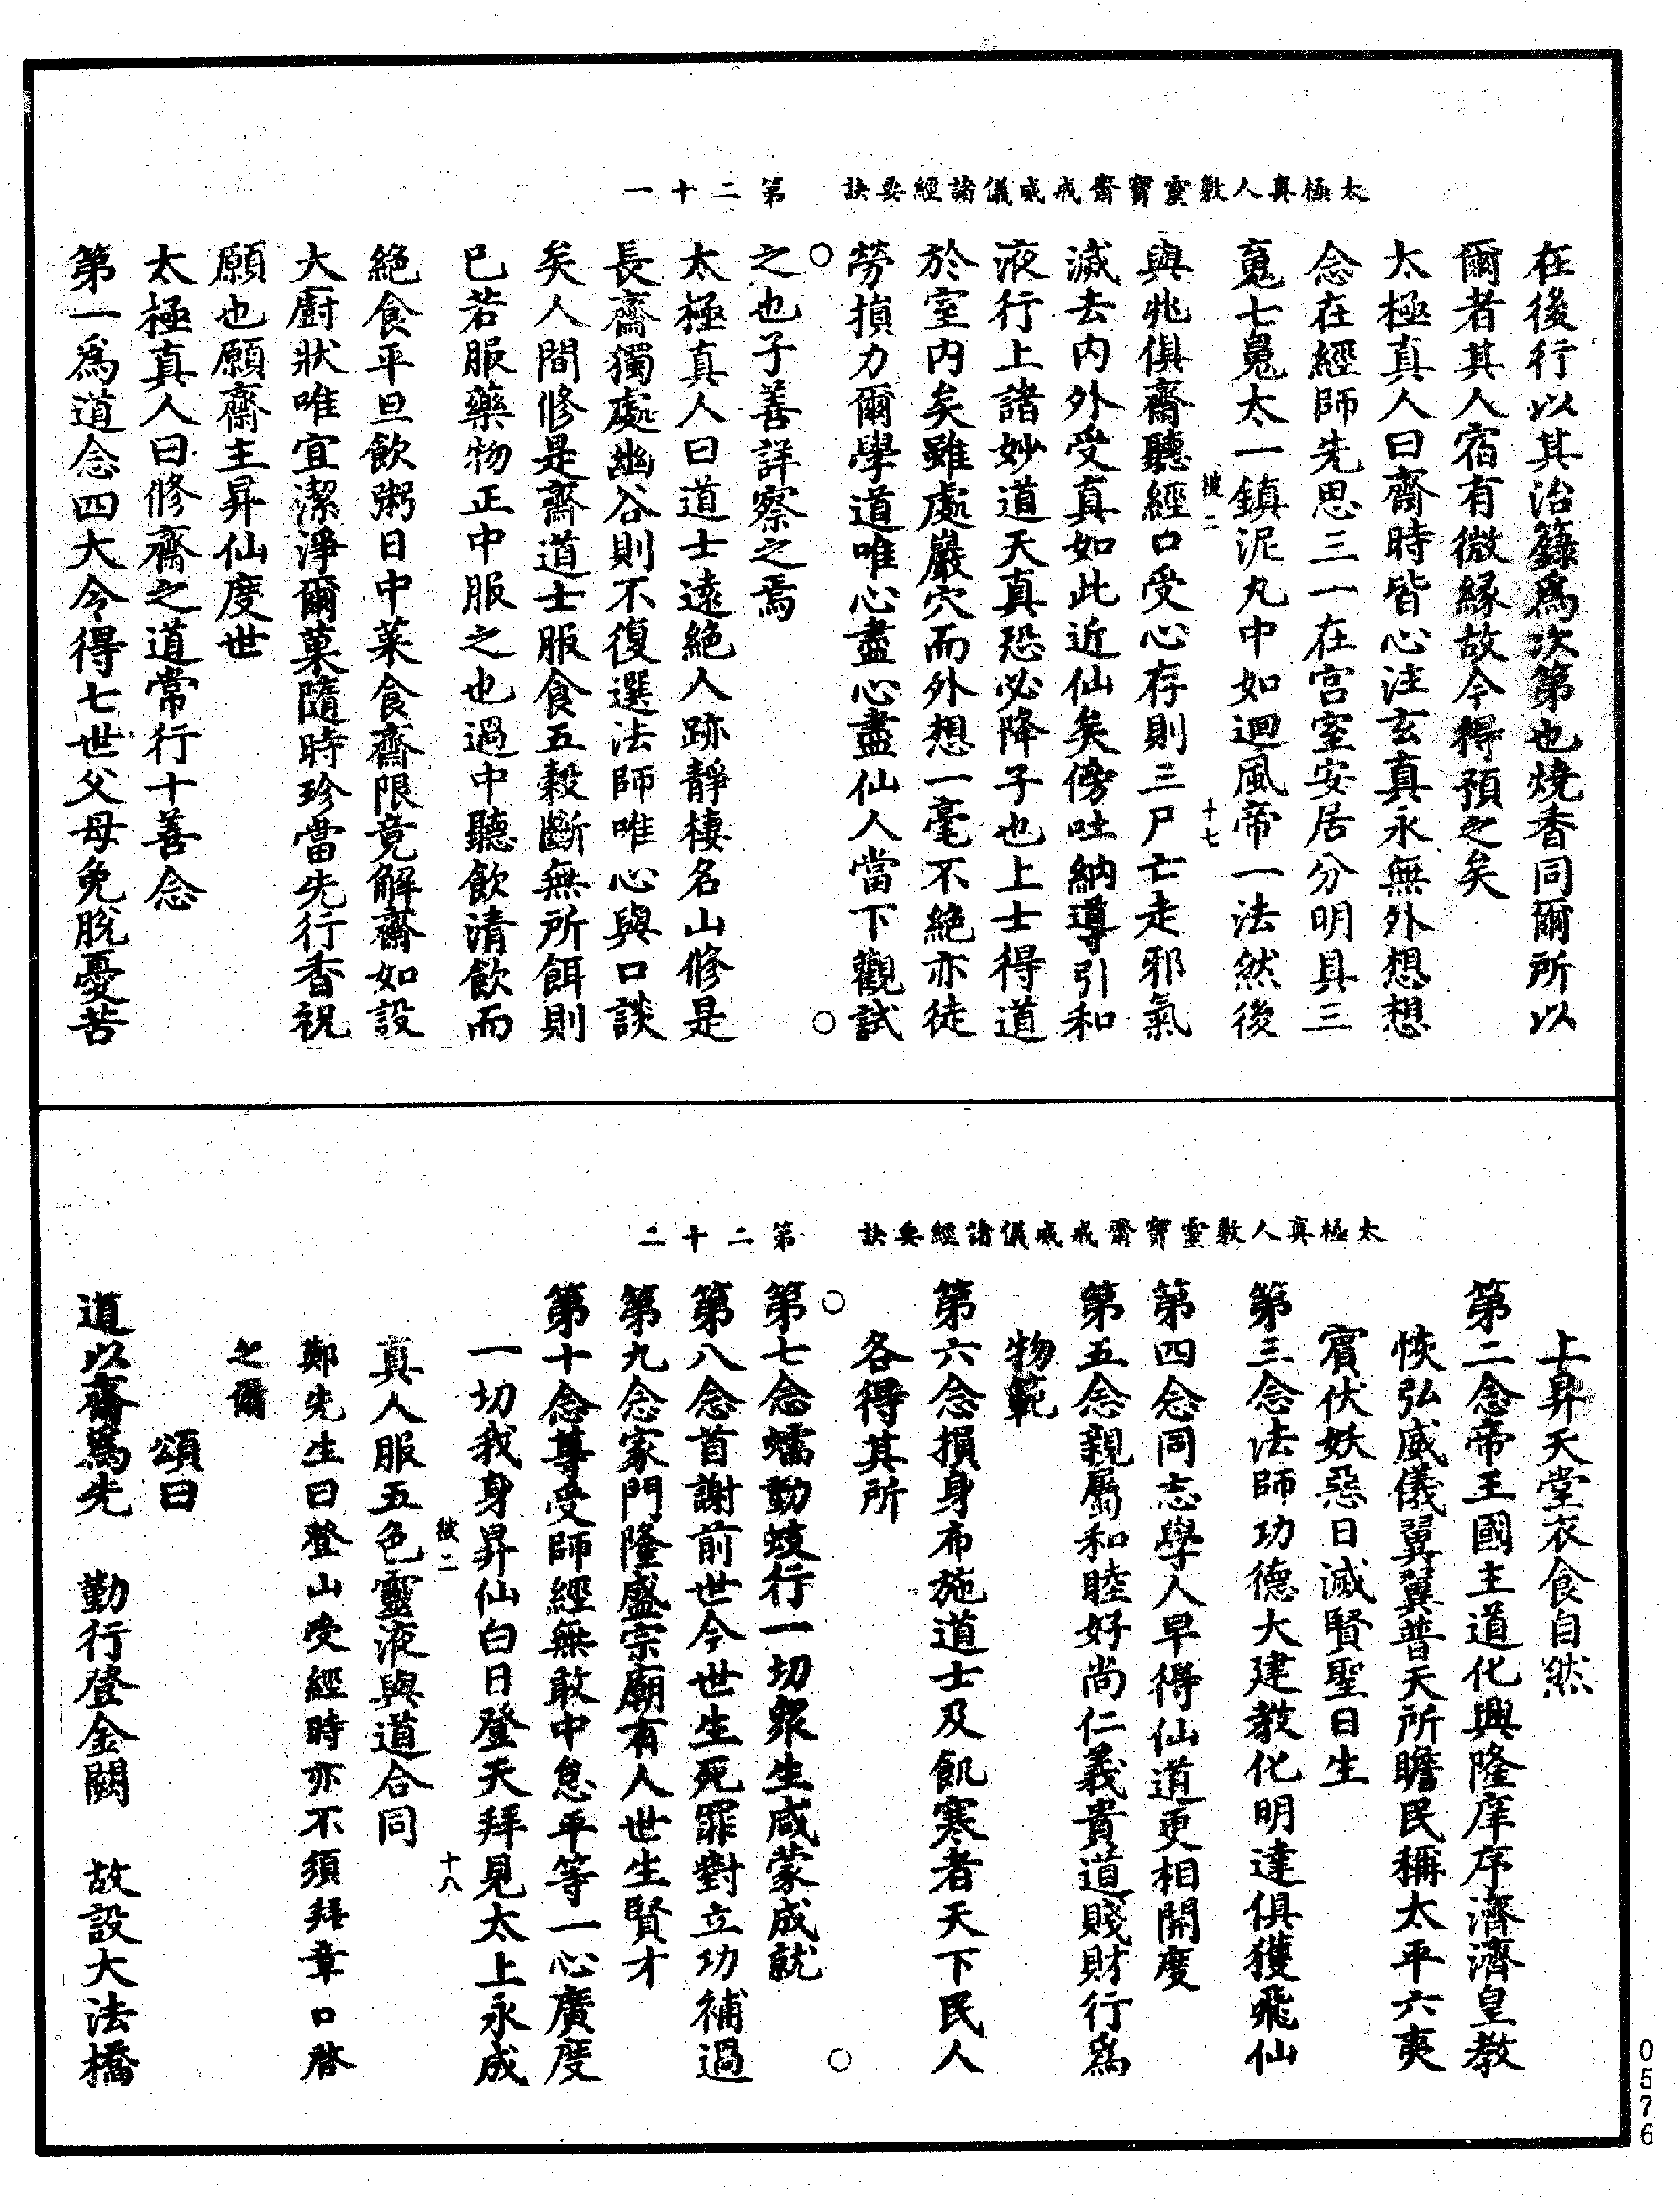 太極真人敷靈寶齋戒威儀諸經要訣　第二十一
在後行以其治籙爲次第也燒香同爾所以
爾者其人宿有微緣故今得預之矣
太極真人曰齋時皆心注玄真永無外想想
念在經師先思三一在宫室安居分明具三
䰟七䰟太一鎮泥丸中如迴風帝一法然後
與兆俱齋聽經口受心存則三尸亡走邪氣
滅去内外受真如此近仙矣傍吐納導引和
液行上諸妙道天真恐必降子也上士得道
於室内矣雖處巖穴而外想一毫不絶亦徒
勞損力爾學道唯心盡心盡仙人當下觀試
之也子善詳察之焉
太極真人曰道士遠絶人跡靜棲名山修是
長齋獨處幽谷則不復選法師唯心與口談
矣人間修是齋道士服食五穀斷無所餌則
已若服藥物正中服之也過中聽飲清飲而
絶食平旦飲粥日中菜食齋限竟解齋如設
大厨狀唯宜潔淨爾菓隨時珍當先行香祝
願也願齋主昇仙度世
太極真人曰修齋之道常行十善念
第一爲道念四大令得七世父母免脱憂苦
二
十七
太極真人敷靈寶齋戒威儀諸經要訣　第二十二
上昇天堂衣食自然
第二念帝王國主道化興隆庠序濟濟皇教
恢弘威儀翼翼普天所瞻民稱太平六夷
賓伏妖惡日滅賢聖日生
第三念法師功德大建教化明達俱獲飛仙
第四念同志學人早得仙道更相開度
第五念親屬和睦好尚仁義貴道賤財行爲
物範
第六念損身布施道士及飢寒者天下民人
各得其所
第七念蠕動蚑行一切衆生咸蒙成就
第八念首謝前世今世生死罪對立功補過
第九念家門隆盛宗廟有人世生賢才
第十念尊受師經無敢中怠平等一心廣度
一切我身昇仙白日登天拜見太上永成
真人服五色靈液與道合同
二
十八
鄭先生曰登山受經時亦不須拜章口啓
之爾
頌曰
道以齋爲先　勤行登金闕　故設大法橋
0576